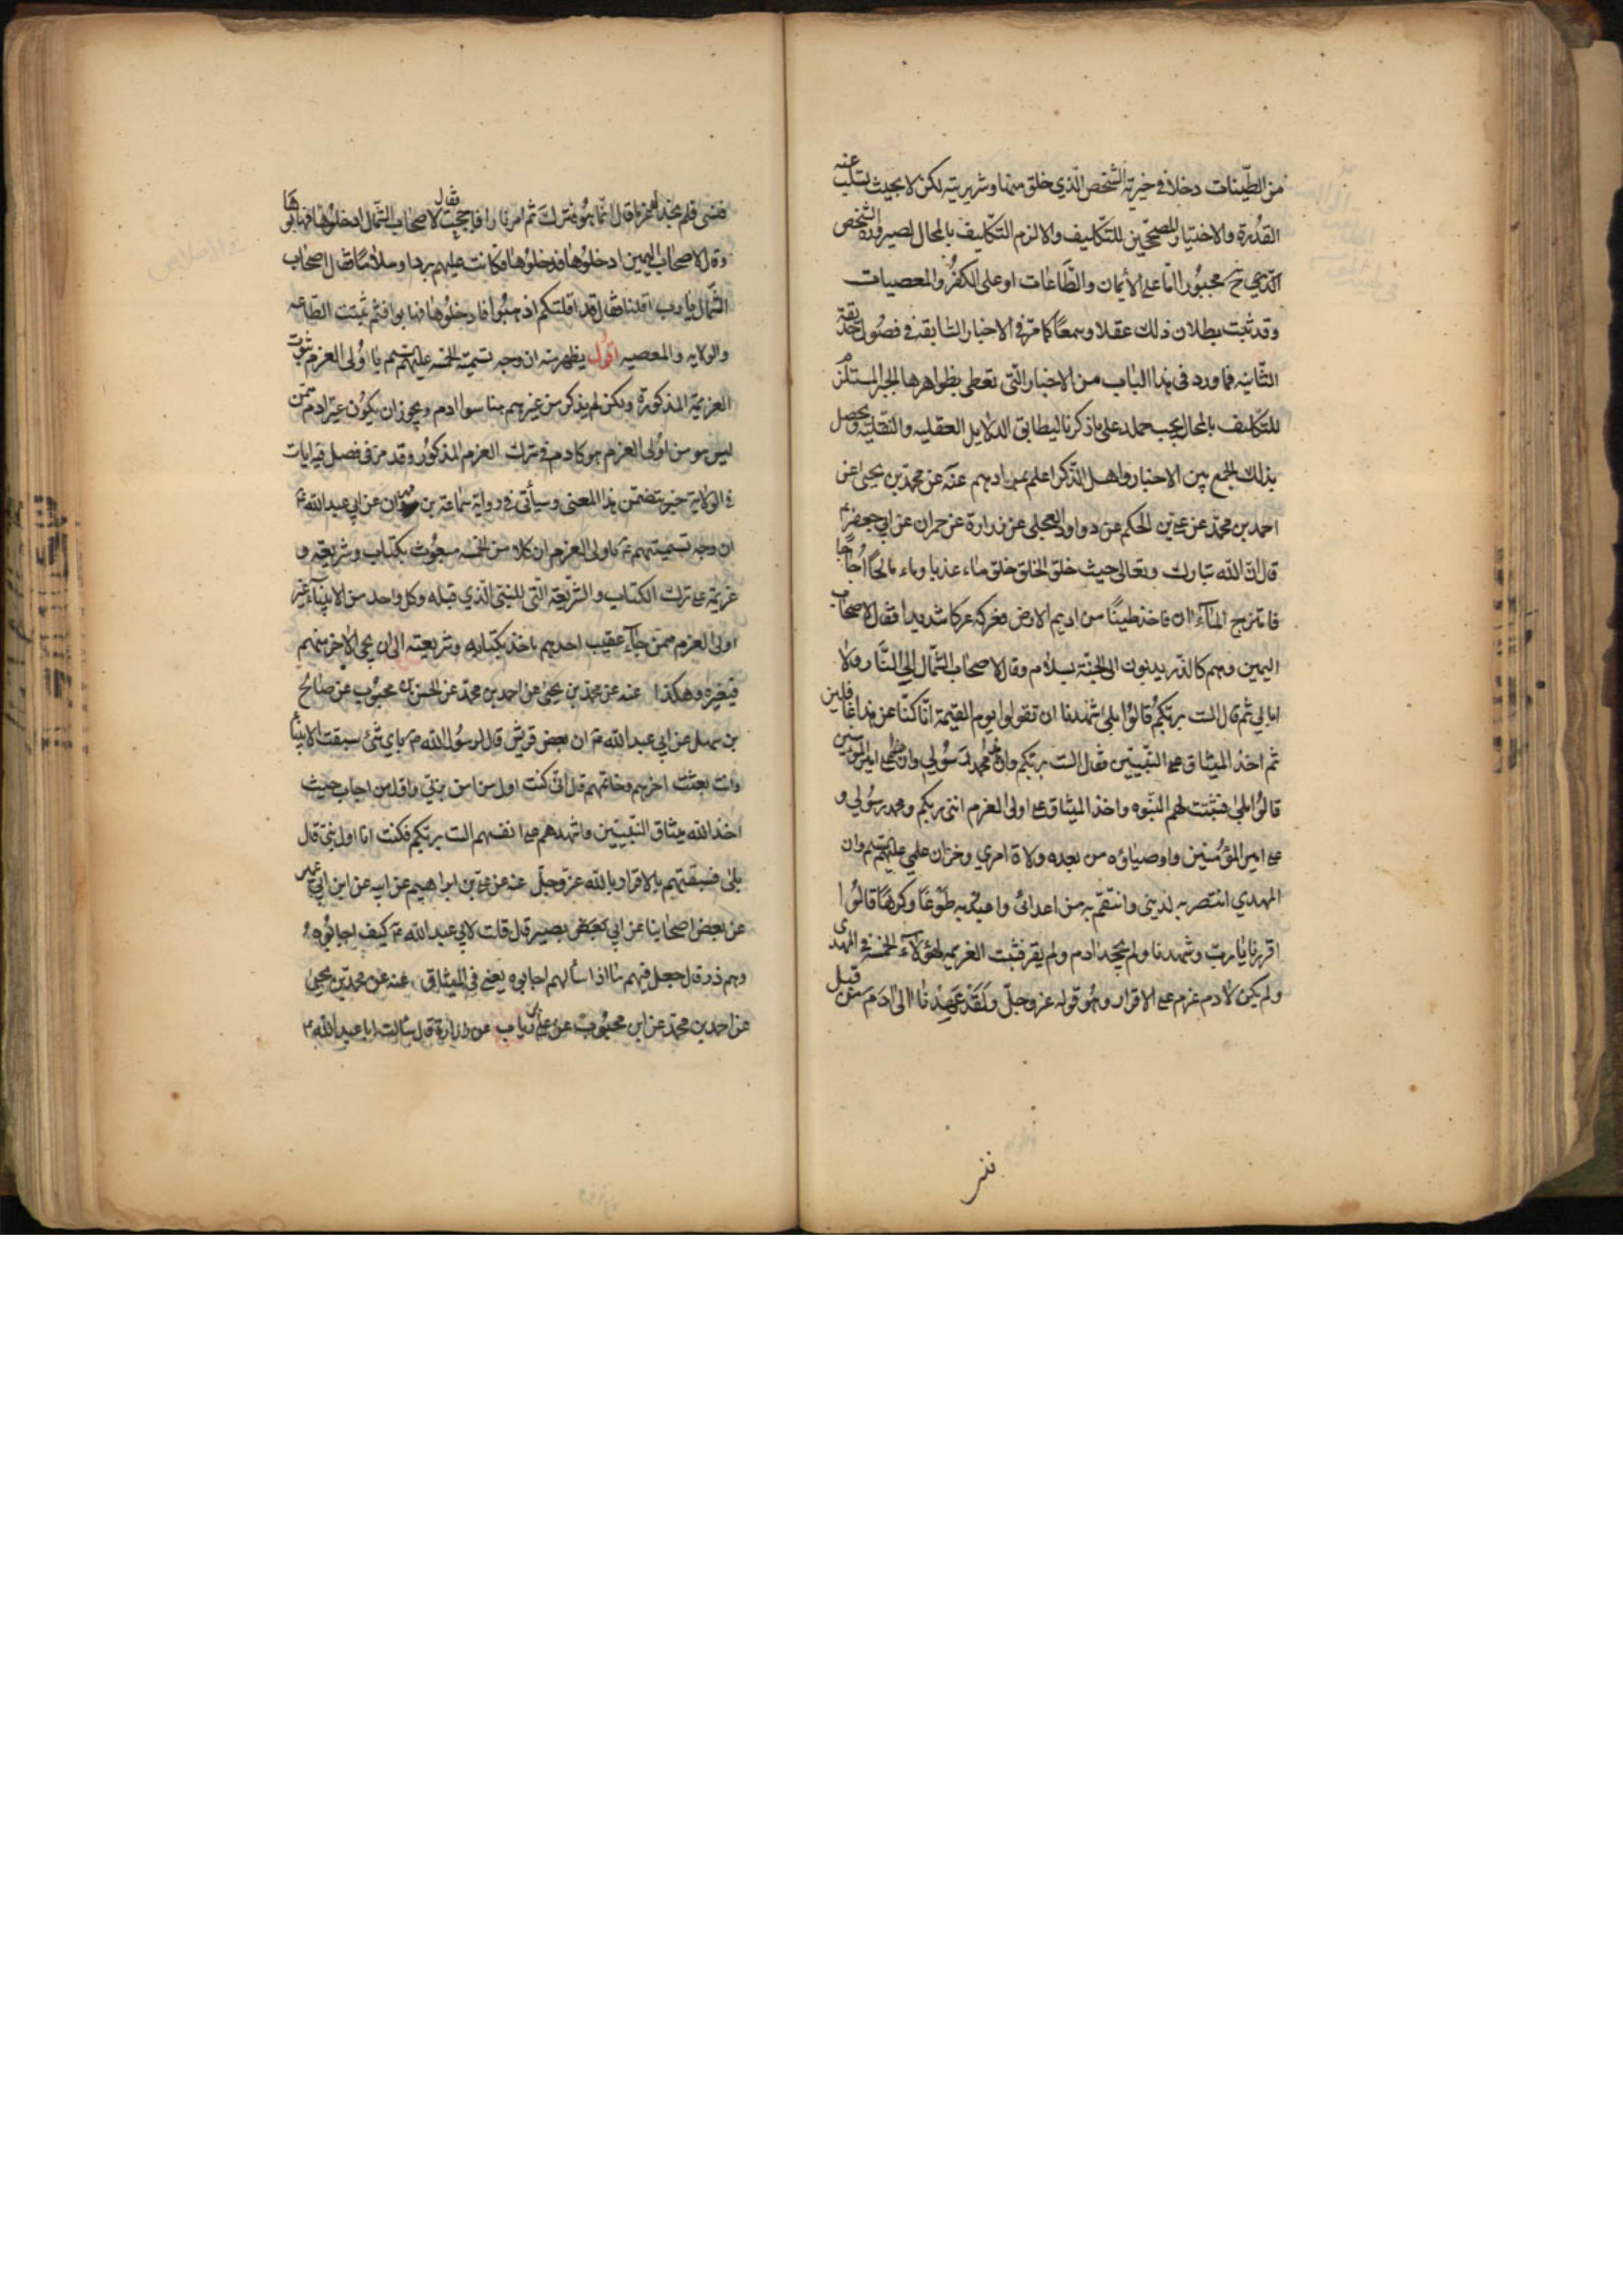 من الطّينات دخلا في خيريّة الشخص الذي خلق منها وشريريته لكن لا بحيث يسلب عنه
القدرة والاختيار المصحّحين للتكليف والا لزم التكليف بالمحال لصيرورة الشخص
الذي هي ح مجبورا امّا على الأيمان والطّاعات او على الكفر والمعصيات
وقد ثبت بطلان ذلك عقلا وسمعًا كما مرّ في الاخبار السّابقة في فصول حديقة
الثّانيه فما ورد في هذا الباب من الاخبار الّتي تعطى بظواهرها الجبر المستلزم
للتكليف بالمحال يجب حمله على ما ذكرنا ليطابق الدلايل العقليه والنقليّة ويحصل
بذلك الجمع بين الاخبار واهل الذكر اعلم بمرادهم عنه عن محمد بن يحيى عن
احمد بن محمد عن علي بن الحكم عن داود العجلي عن زرارة عن حمران عن ابي جعفر ع
قال ان الله تبارك وتعالى حيث خلق الخلق خلق ماء عذبا وماء مالحًا اُجاجًا
فامتزج المآءان فاخذ طينًا من اديم الارض فعركه عركا شديدا فقال لاصحاب
اليمين وهم كالذر يدبون الى الجنّة بسلام وقال لاصحاب الشمال الى النّار ولا
ابالي ثم قال الست بربّكم قالوا بلى شهدنا ان تقولوا يوم القيمة انّا كنّا عن هذا غافلين
ثم اخذ الميثاق على النّبيّين فقال الست بربكم وان هذا محمد رسولي وان هذا علي امير المؤمنين
قالوا بلى فثبتت لهم النبّوه واخذ الميثاق على اولى العزم انني ربكم ومحمد رسولي و
على امير المؤمنين واوصياؤه من بعده ولاة امري وخزان علمي عليهم السلم وان
المهدي انتصر به لديني وانتقم به من اعدائي واعبد به طوعًا وكرهًا قالوا
اقررنا يا ربّ وشهدنا ولم يجحد ادم ولم يقر فثبت العزيمه لهؤلاء الخمسة في المهدى
ولم يكن لادم عزم على الاقرار وهو قوله عز وجلّ ولقد عهدنا الى ادم من قبل
فنسي ولم نجد له عزما قال انّما هو فترك ثم امر نارا فاججت فقال لاصحاب الشّمال ادخلوها فهابوها
وقال لاصحاب اليمين ادخلوها فدخلوها فكانت عليهم بردا وسلامًا فقال اصحاب
الشّمال يا رب اقلنا فقال قد اقلتكم اذهبوا فادخلوها فهابوا فثم ثبتت الطّاعه
والولايه والمعصيه اقول يظهر منه ان وجه تسميته الخمسه عليهم السلم باولى العزم ثبوت
العزيمة المذكورة ولكن لم يذكر من غيرهم هنا سوا ادم ويجوز ان يكون غير ادم ممّن
ليس هو من اولى العزم هو كادم في ترك العزم المذكور وقد مرّ في فصل في ايات
في الولاية خبر يتضمن هذا المعنى وسيأتى في رواية سماعة بن مهران عن ابي عبد الله ع
ان وجه تسميتهم ع باولى العزم ان كلا من الخمسه مبعوث بكتاب وشريعة و
عزيمة على ترك الكتاب والشّريعة الّتي للنبيّ الّذي قبله وكل واحد من الانبيآء غير
اولى العزم ممّن جآء عقيب احدهم باخذ بكتابه وشريعته الى ان يجي الاخر منهم
فيغيره وهكذا عنه عن محمد بن يحيى عن احمد بن محمد عن الحسن بن محبوب عن صالح
بن سهل عن ابي عبد الله ع ان بعض قريش قال لرسول الله ص باي شئ سبقت الانبيآ
وانت بعثت اخرهم وخاتمهم قال انّى كنت اول من امن بربّي واول من اجاب حيث
اخذ الله ميثاق النّبيّين واشهدهم على انفسهم الست بربّكم فكنت انا اول نبيّ قال
بلى فسبقتهم بالاقرار بالله عزّ وجلّ عنه عن علي بن ابراهيم عن ابيه عن ابن ابي عمير
عن بعض اصحابنا عن ابي بصير قال قلت لابي عبد الله ع كيف اجابوه
وهم ذر قال جعل فيهم ما اذا سألهم اجابوه يعني في الميثاق عنه عن محمد بن يحيى
عن احمد بن محمد عن ابن محبوب عن علي بن رياب عن زرارة قال سألت ابا عبد الله ع